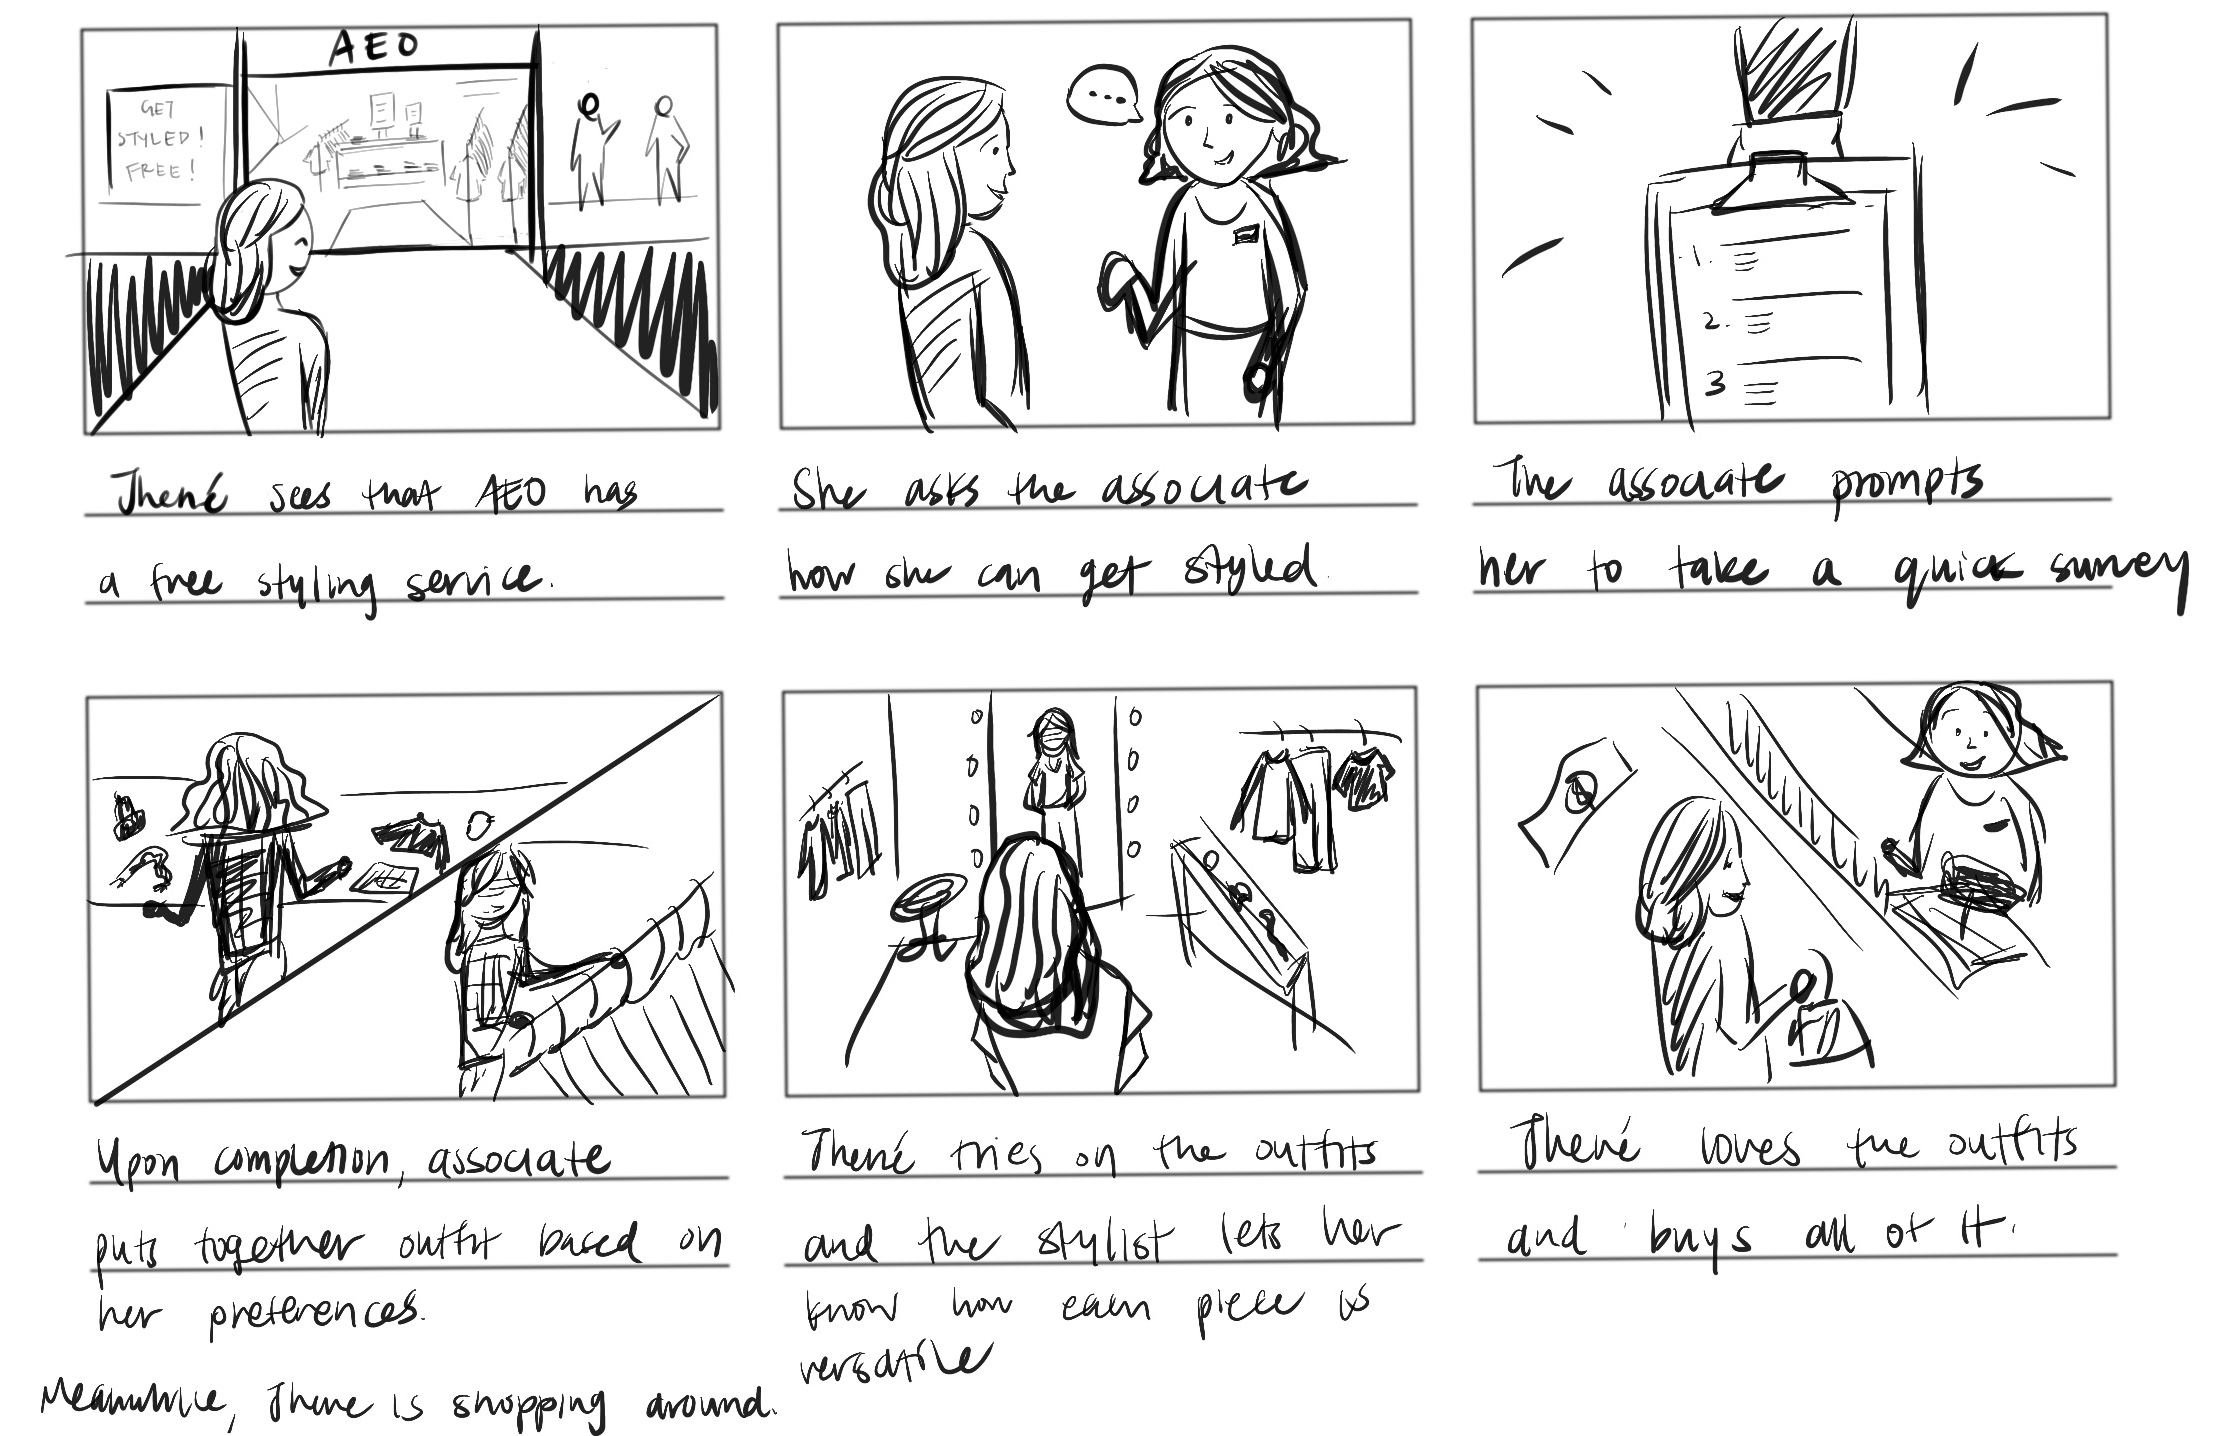 AEO
GET
STYLED!
FREE!
Jhené sees that AEO has
a free styling service.
...
She asks the associate
how she can get styled.
1.
2.
3
The associate prompts
her to take a quick survey
Upon completion, associate
puts together outfit based on
her preferences.
Meanwhile, Jhene is shopping around.
Jhené tries on the outfits
and the stylist lets her
know how each piece is
versatile
Jhené loves the outfits
and buys all of it.